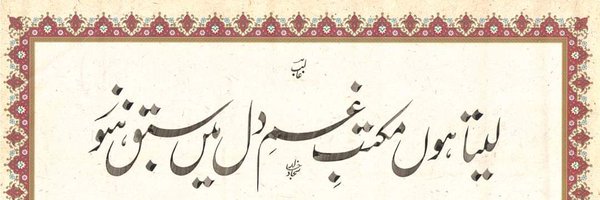 غالب
لیتا ہوں مکتبِ غمِ دل میں سبق ہنوز